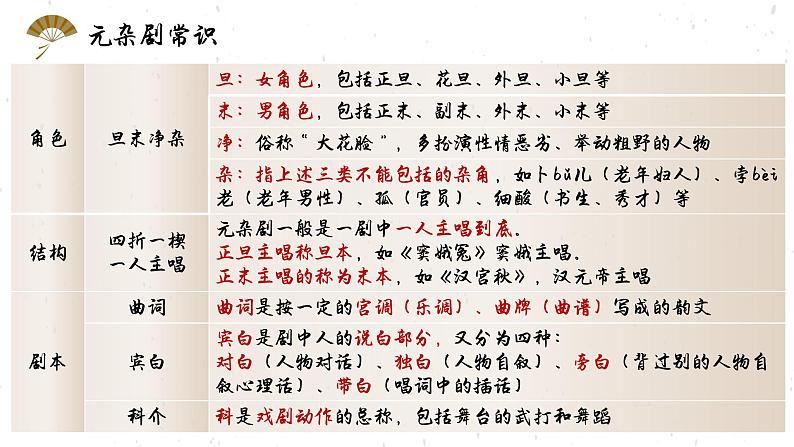 元杂剧常识
角色
旦末净杂
旦：女角色，包括正旦、花旦、外旦、小旦等
末：男角色，包括正末、副末、外末、小末等
净：俗称“大花脸”，多扮演性情恶劣、举动粗野的人物
杂：指上述三类不能包括的杂角，如卜bǔ儿（老年妇人）、孛bèi
老（老年男性）、孤（官员）、细酸（书生、秀才）等
结构
四折一楔
一人主唱
元杂剧一般是一剧中一人主唱到底.
正旦主唱称旦本，如《窦娥冤》窦娥主唱.
正末主唱的称为末本，如《汉宫秋》，汉元帝主唱
剧本
曲词
曲词是按一定的宫调（乐调）、曲牌（曲谱）写成的韵文
宾白
宾白是剧中人的说白部分，又分为四种：
对白（人物对话）、独白（人物自叙）、旁白（背过别的人物自
叙心理话）、带白（唱词中的插话）
科介
科是戏剧动作的总称，包括舞台的武打和舞蹈